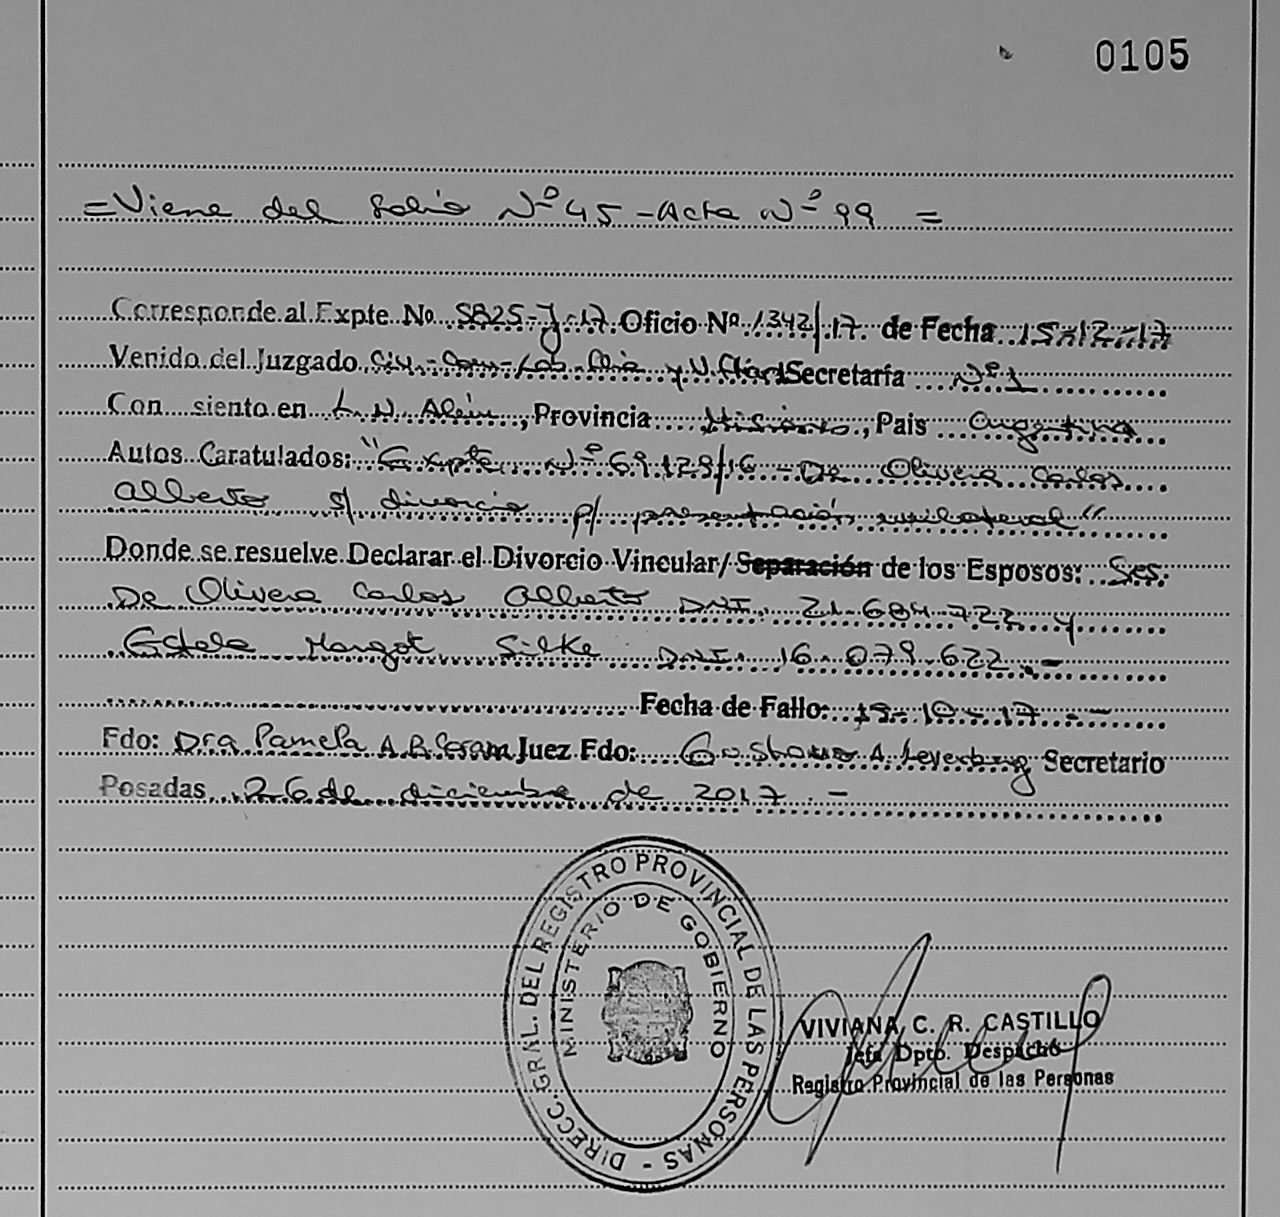 0105
=Viene del folio Nº 45-Acta Nº 99 =
Corresponde al Expte. No. 5825-J-17 Oficio Nº 1342/17 de Fecha 15-12-17
Venido del Juzgado Civ.-Com-Lab. Flia y V. Secretaría Nº 1
Con siento en L. N. Alem, Provincia Misiones, Pais Argentina
Autos Caratulados: "Expte. Nº 69.129/16 - De Olivera Carlos
Alberto s/ divorcio p/ presentación unilateral"
Donde se resuelve Declarar el Divorcio Vincular/Separación de los Esposos: Sres.
De Olivera Carlos Alberto DNI. 21.684.722 y
Estela Margot Silke DNI. 16.079.622.-
Fecha de Fallo: 19-10-17.--
Fdo: Dra Pamela A. B. Juez Fdo: Gustavo A. Secretario
Posadas, 26 de diciembre de 2017.-
DIRECC. GRAL. DEL REGISTRO PROVINCIAL DE LAS PERSONAS -
MINISTERIO DE GOBIERNO
VIVIANA C. R. CASTILLO
Jefa Dpto. Despacho
Registro Provincial de las Personas